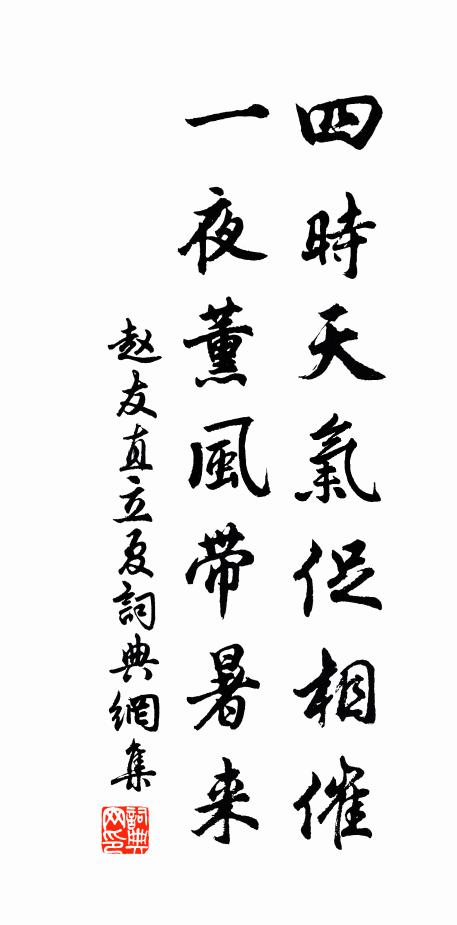 四時天氣促相催
一夜薰風带暑来
赵友直立夏詞典網集
詞典
网印